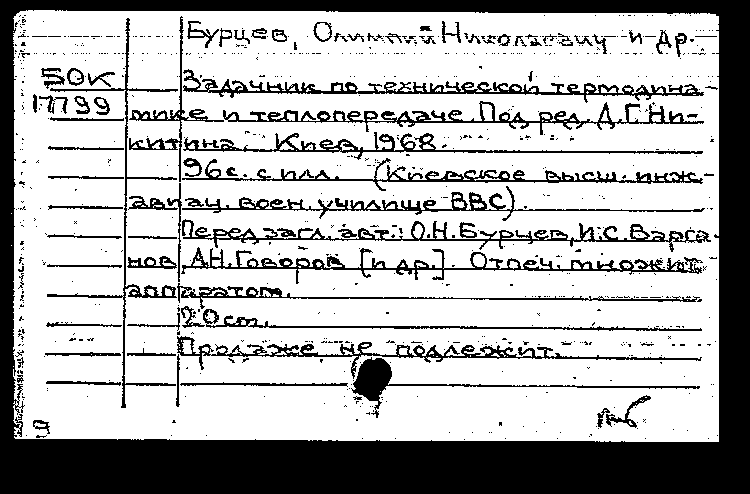 Бурцев, Олимпий Николаевич и др.
БОК Задачник по технической термодина-
17799 мике и теплопередаче. Под ред. Д.Г. Ни-
китина. Киев, 1968.
96с. с илл. (Киевское высш. инж.-
авиац. воен. училище ВВС).
Перед загл. авт.: О.Н. Бурцев, И.С. Варга-
нов, А.Н. Говоров [и др.]. Отпеч. множит.
аппаратом.
20см.
Продаже не подлежит.